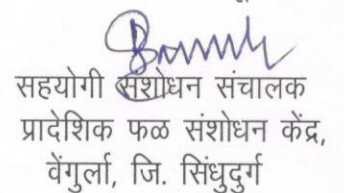 सहयोगी संशोधन संचालक
प्रादेशिक फळ संशोधन केंद्र,
वेंगुर्ला, जि. सिंधुदुर्ग